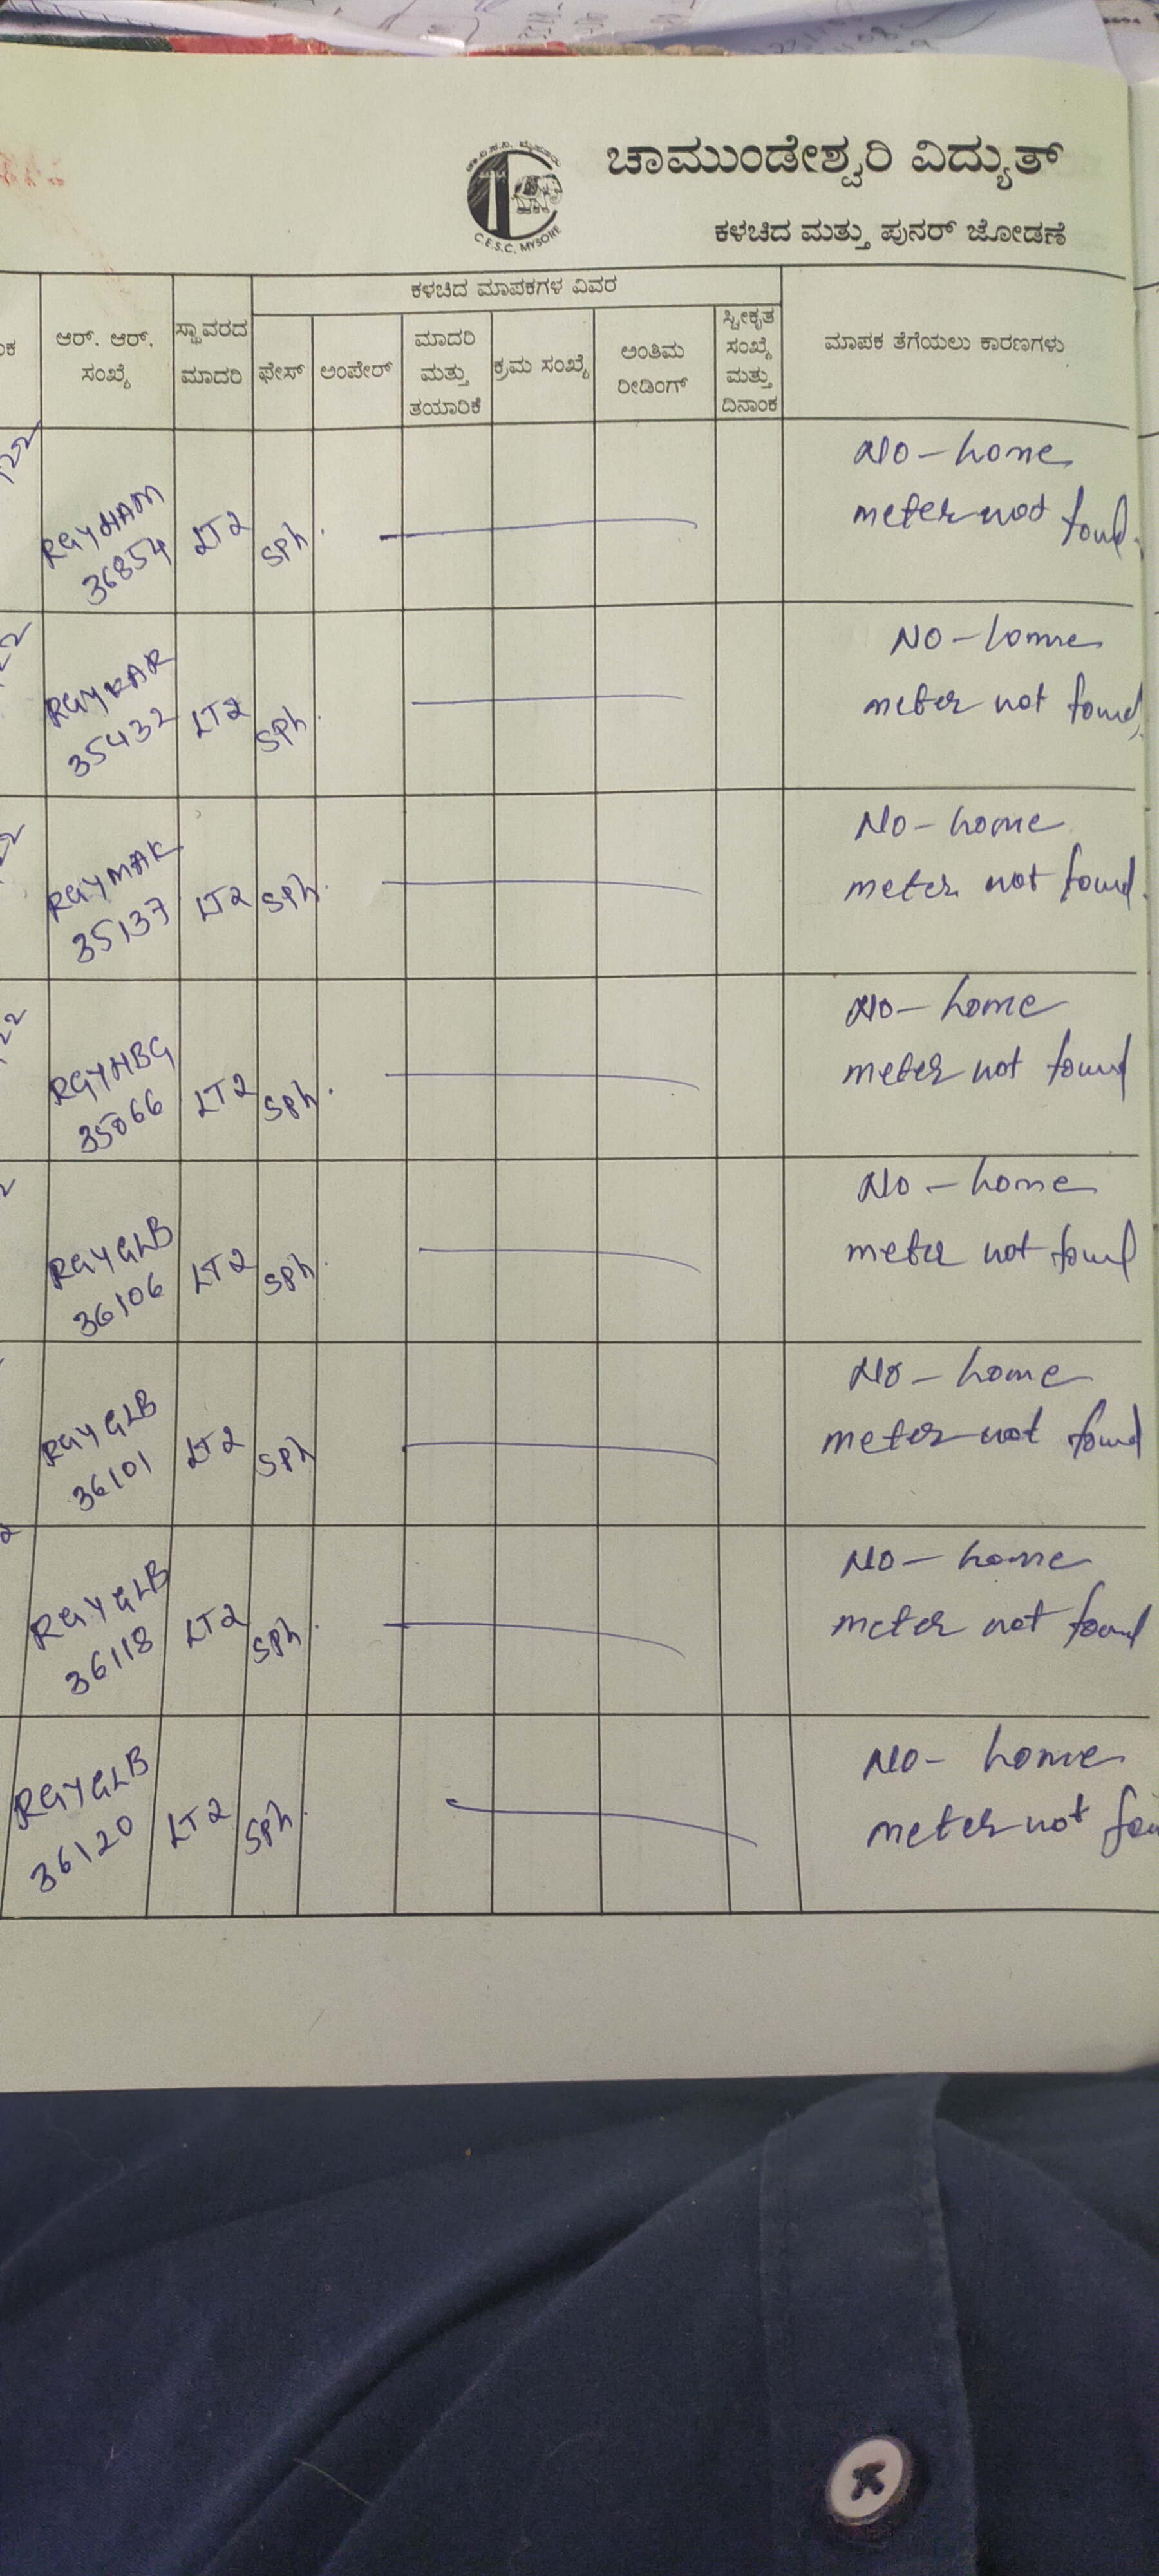 ಚಾಮುಂಡೇಶ್ವರಿ ವಿದ್ಯುತ್
C.E.S.C, MYSORE
ಕಳಚಿದ ಮತ್ತು ಪುನರ್ ಜೋಡಣೆ
ಕಳಚಿದ ಮಾಪಕಗಳ ವಿವರ
ಆರ್. ಆರ್. ಸಂಖ್ಯೆ
ಸ್ಥಾವರದ ಮಾದರಿ
ಫೇಸ್
ಅಂಪೇರ್
ಮಾದರಿ ಮತ್ತು ತಯಾರಿಕೆ
ಕ್ರಮ ಸಂಖ್ಯೆ
ಅಂತಿಮ ರೀಡಿಂಗ್
ಸ್ವೀಕೃತ ಸಂಖ್ಯೆ ಮತ್ತು ದಿನಾಂಕ
ಮಾಪಕ ತೆಗೆಯಲು ಕಾರಣಗಳು
RGYHAM LT2 SPh. No-home
36854 meter not found.
RGYKAR LT2 SPh. No-home
35432 meter not found.
RGYMAK LT2 SPh. No-home
35137 meter not found.
RGYHBG LT2 SPh. No-home
35066 meter not found
RGYGLB LT2 SPh. No-home
36106 meter not found
RGYGLB LT2 SPh No-home
36101 meter not found
RGYGLB LT2 SPh. No-home
36118 meter not found
RGYGLB LT2 SPh. No-home
36120 meter not fou